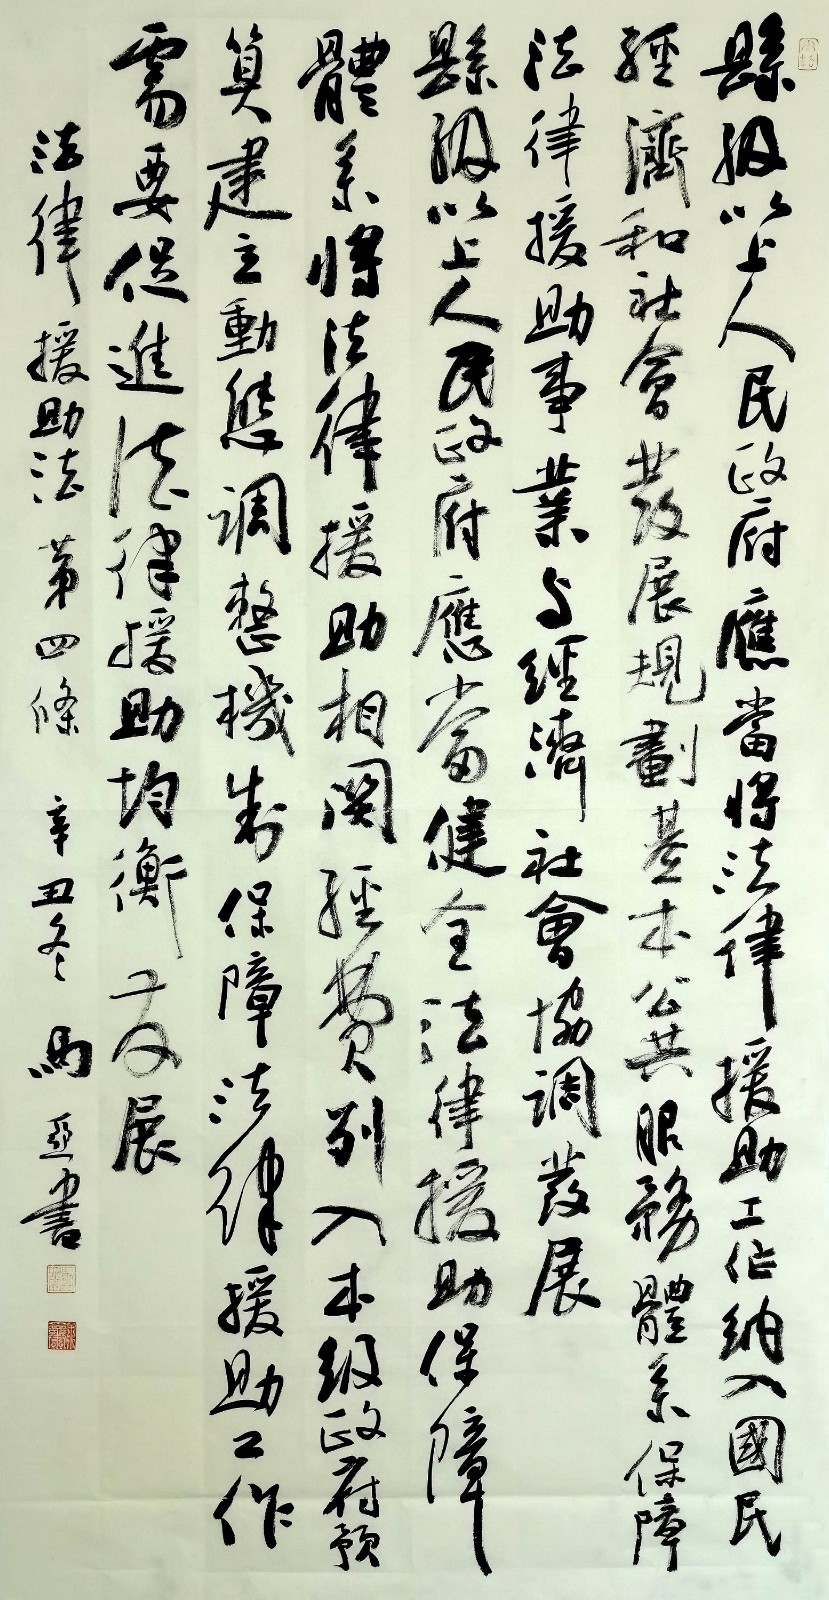 縣級以上人民政府應當將法律援助工作納入國民
經濟和社會發展規劃基本公共服務體系保障
法律援助事業与經濟社會協調發展
縣級以上人民政府應當健全法律援助保障
體系將法律援助相関經費列入本級政府預
算建立動態調整機制保障法律援助工作
需要促進法律援助均衡發展
法律援助法第四條 辛丑冬 馬亞書